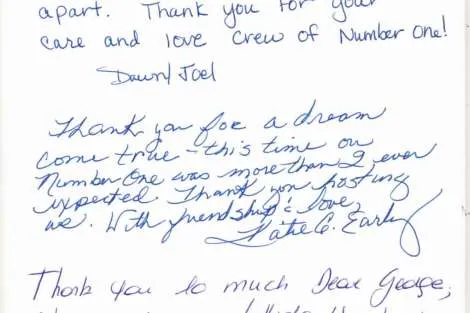 apart. Thank you for your
care and love Crew of Number One!
Dawn/Joel
Thank you foe a dream
come true - this time on
Number One was more than I ever
expected. Thank you hosting
us. With friendship & love,
Katie C. Early
Thank you so much Dear George,